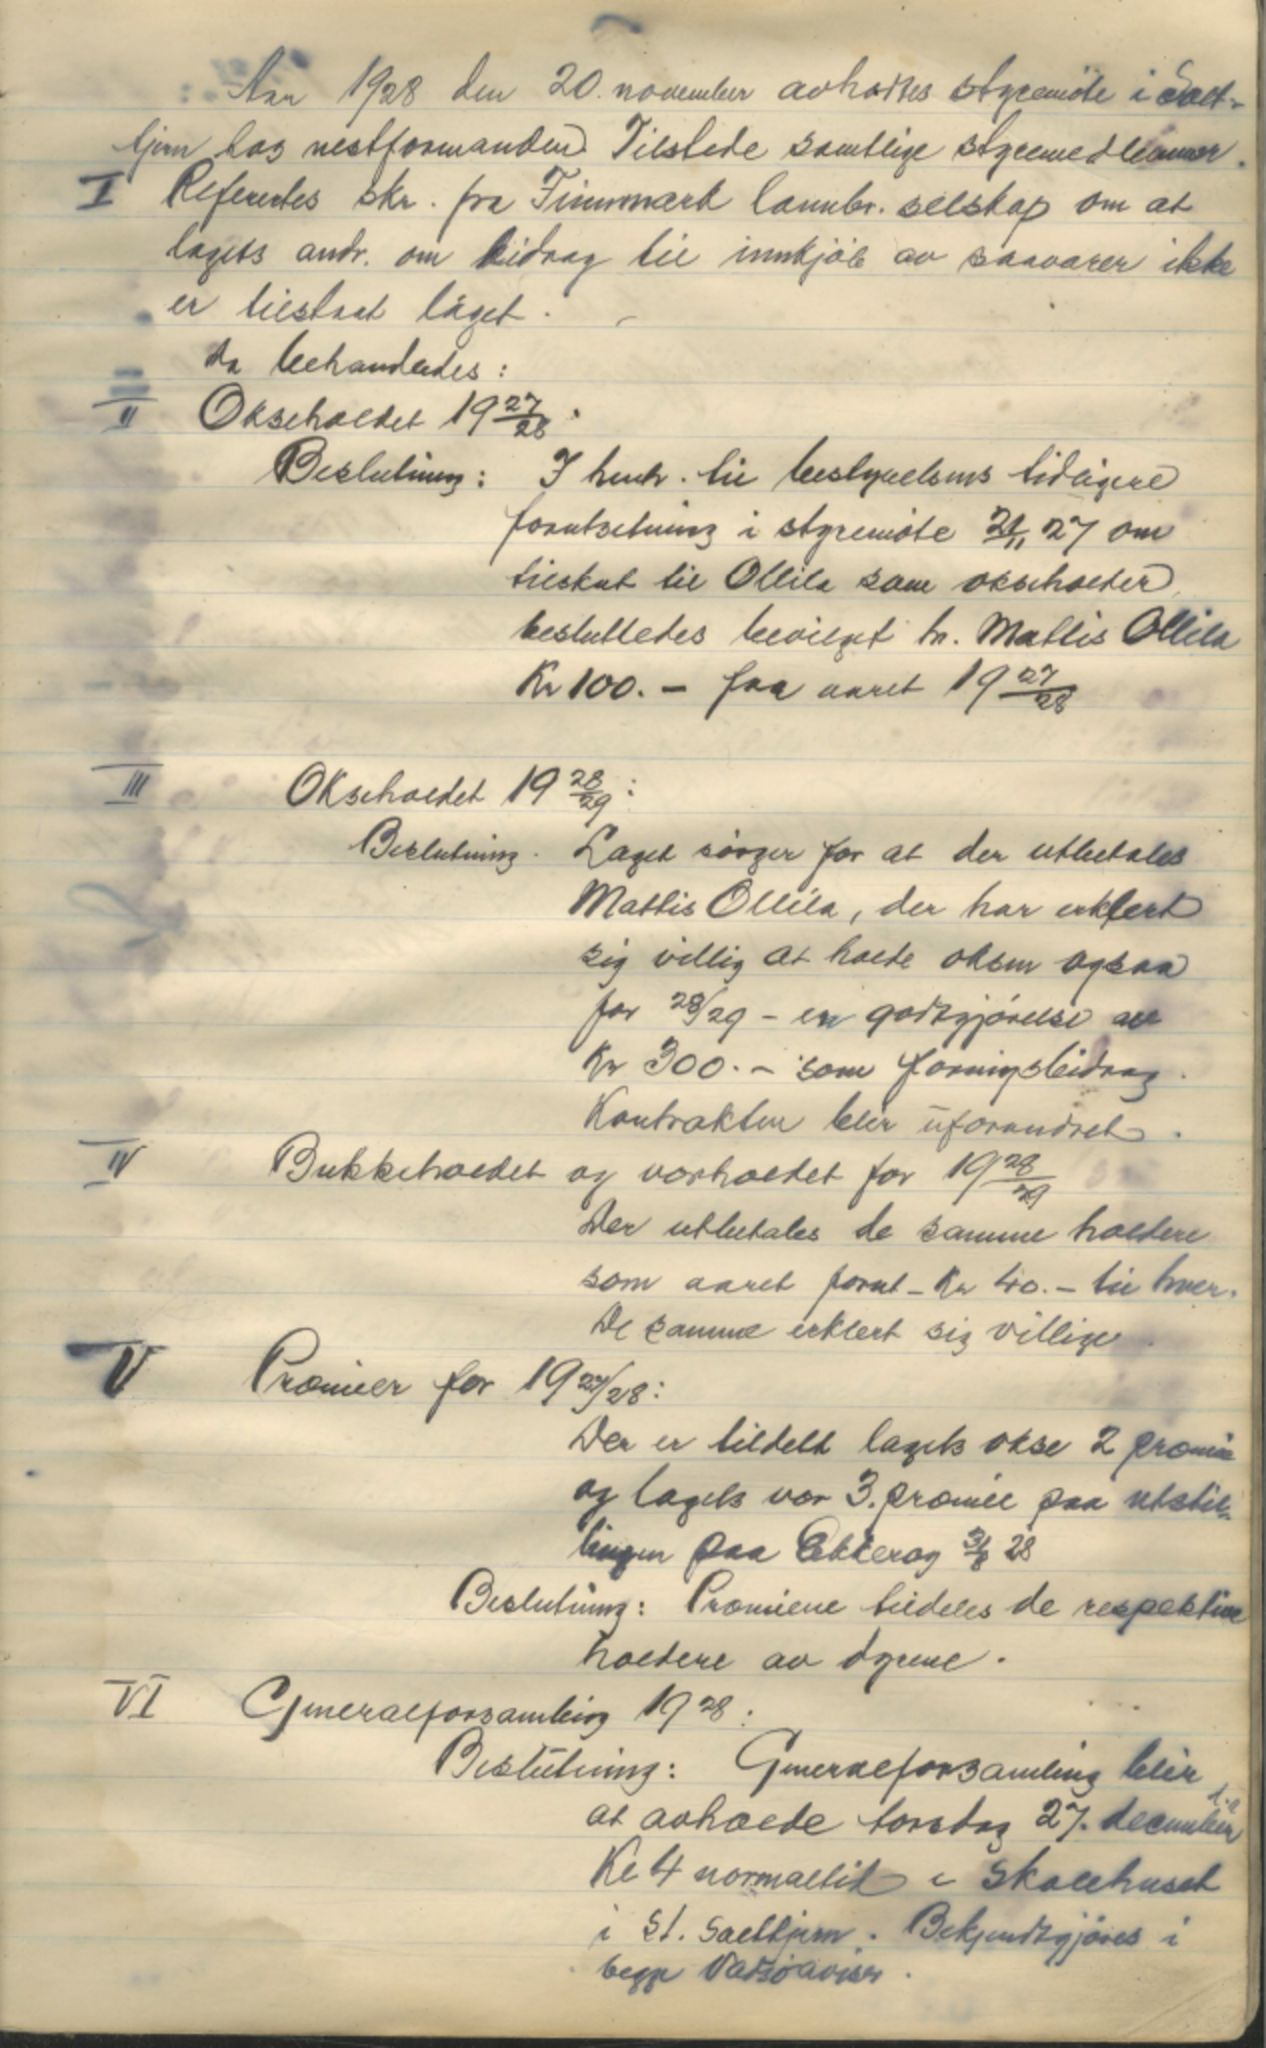 Aar 1928 den 20. november avholtes styremöte i Salt-
tjern hos nestformanden. Tilstede samtlige styremedlemmer.
I Referertes skr. fra Finnmark lannbr. selskap om at
lagets andr. om bidrag til innkjöb av saavarer ikke
er tilstaat laget.
Da behandledes:
II Okseholdet 19 27/28.
Beslutning: I henh. til bestyrelsens tidligere
forutsetning i styremöte 21/11 27 om
tilskut til Ollila som okseholder,
beslutledes bevilget hr. Mattis Ollila
Kr 100.- for aaret 19 27/28
III Okseholdet 19 28/29:
Beslutning. Laget sörger for at der utbetales
Mattis Ollila, der har erklert
sig villig at holde oksen ogsaa
for 28/29 - en godtgjörelse av
Kr 300.- som foringsbidrag.
Kontrakten blir uforandret.
IV Bukkeholdet og vorholdet for 19 28/29
Der utbetales de samme holdere
som aaret forut - Kr 40.- til hver.
De samme erklert sig villige.
V Premier for 19 27/28:
Der er tildelt lagets okse 2 premie
og lagets vor 3. premie paa utstil-
lingen paa Ekkeröy 31/8 28
Beslutning: Premiene tildeles de respektive
holdere av dyrene.
VI Generalforsamling 1928:
Beslutning: Generalforsamling blir
at avholde torsdag 27. december d.a.
Kl 4 normaltid i Skolehuset
i St. Salttjern. Bekjendtgjöres i
begge Vadsöaviser.